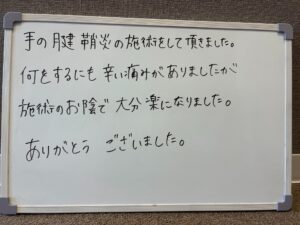 手の腱鞘炎の施術をして頂きました。
何をするにも辛い痛みがありましたが
施術のお陰で大分楽になりました。
ありがとう ございました。